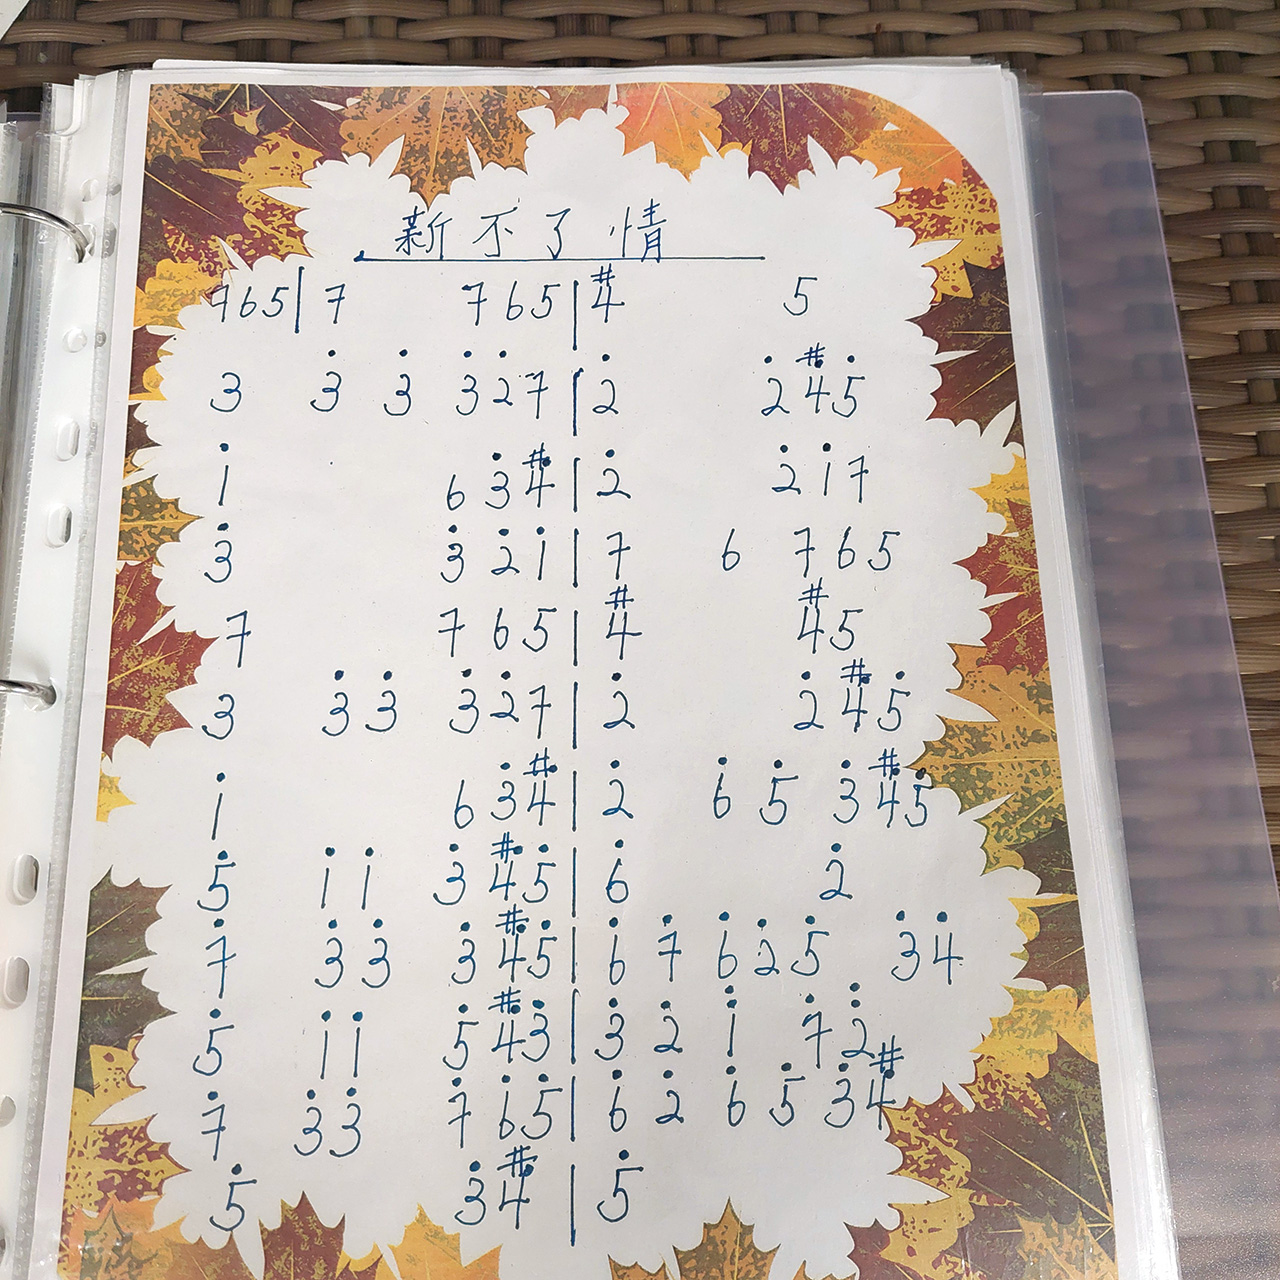 新不了情
765|7 765|#4 5
3 3̇ 3̇ 3̇2̇7|2̇ 2̇#4̇5̇
1̇ 63̇#4̇|2̇ 2̇1̇7
3̇ 3̇2̇1̇|7 6 765
7 765|#4 #45
3 3̇3̇ 3̇2̇7|2̇ 2̇#4̇5̇
1̇ 63̇#4̇|2̇ 6̇ 5̇ 3̇#4̇5̇
5̇ 1̇1̇ 3̇#4̇5̇|6̇ 2̇
7̇ 3̇3̇ 3̇#4̇5̇|6̇ 7̇ 6̇2̇5̇ 3̇4̇
5̇ 1̇1̇ 5̇#4̇3̇|3̇ 2̇ 1̈ 7̇2̈
7̇ 3̇3̇ 7̇6̇5̇|6̇ 2̇ 6̇ 5̇ 3̇#4̇
5̇ 3̇#4̇|5̇